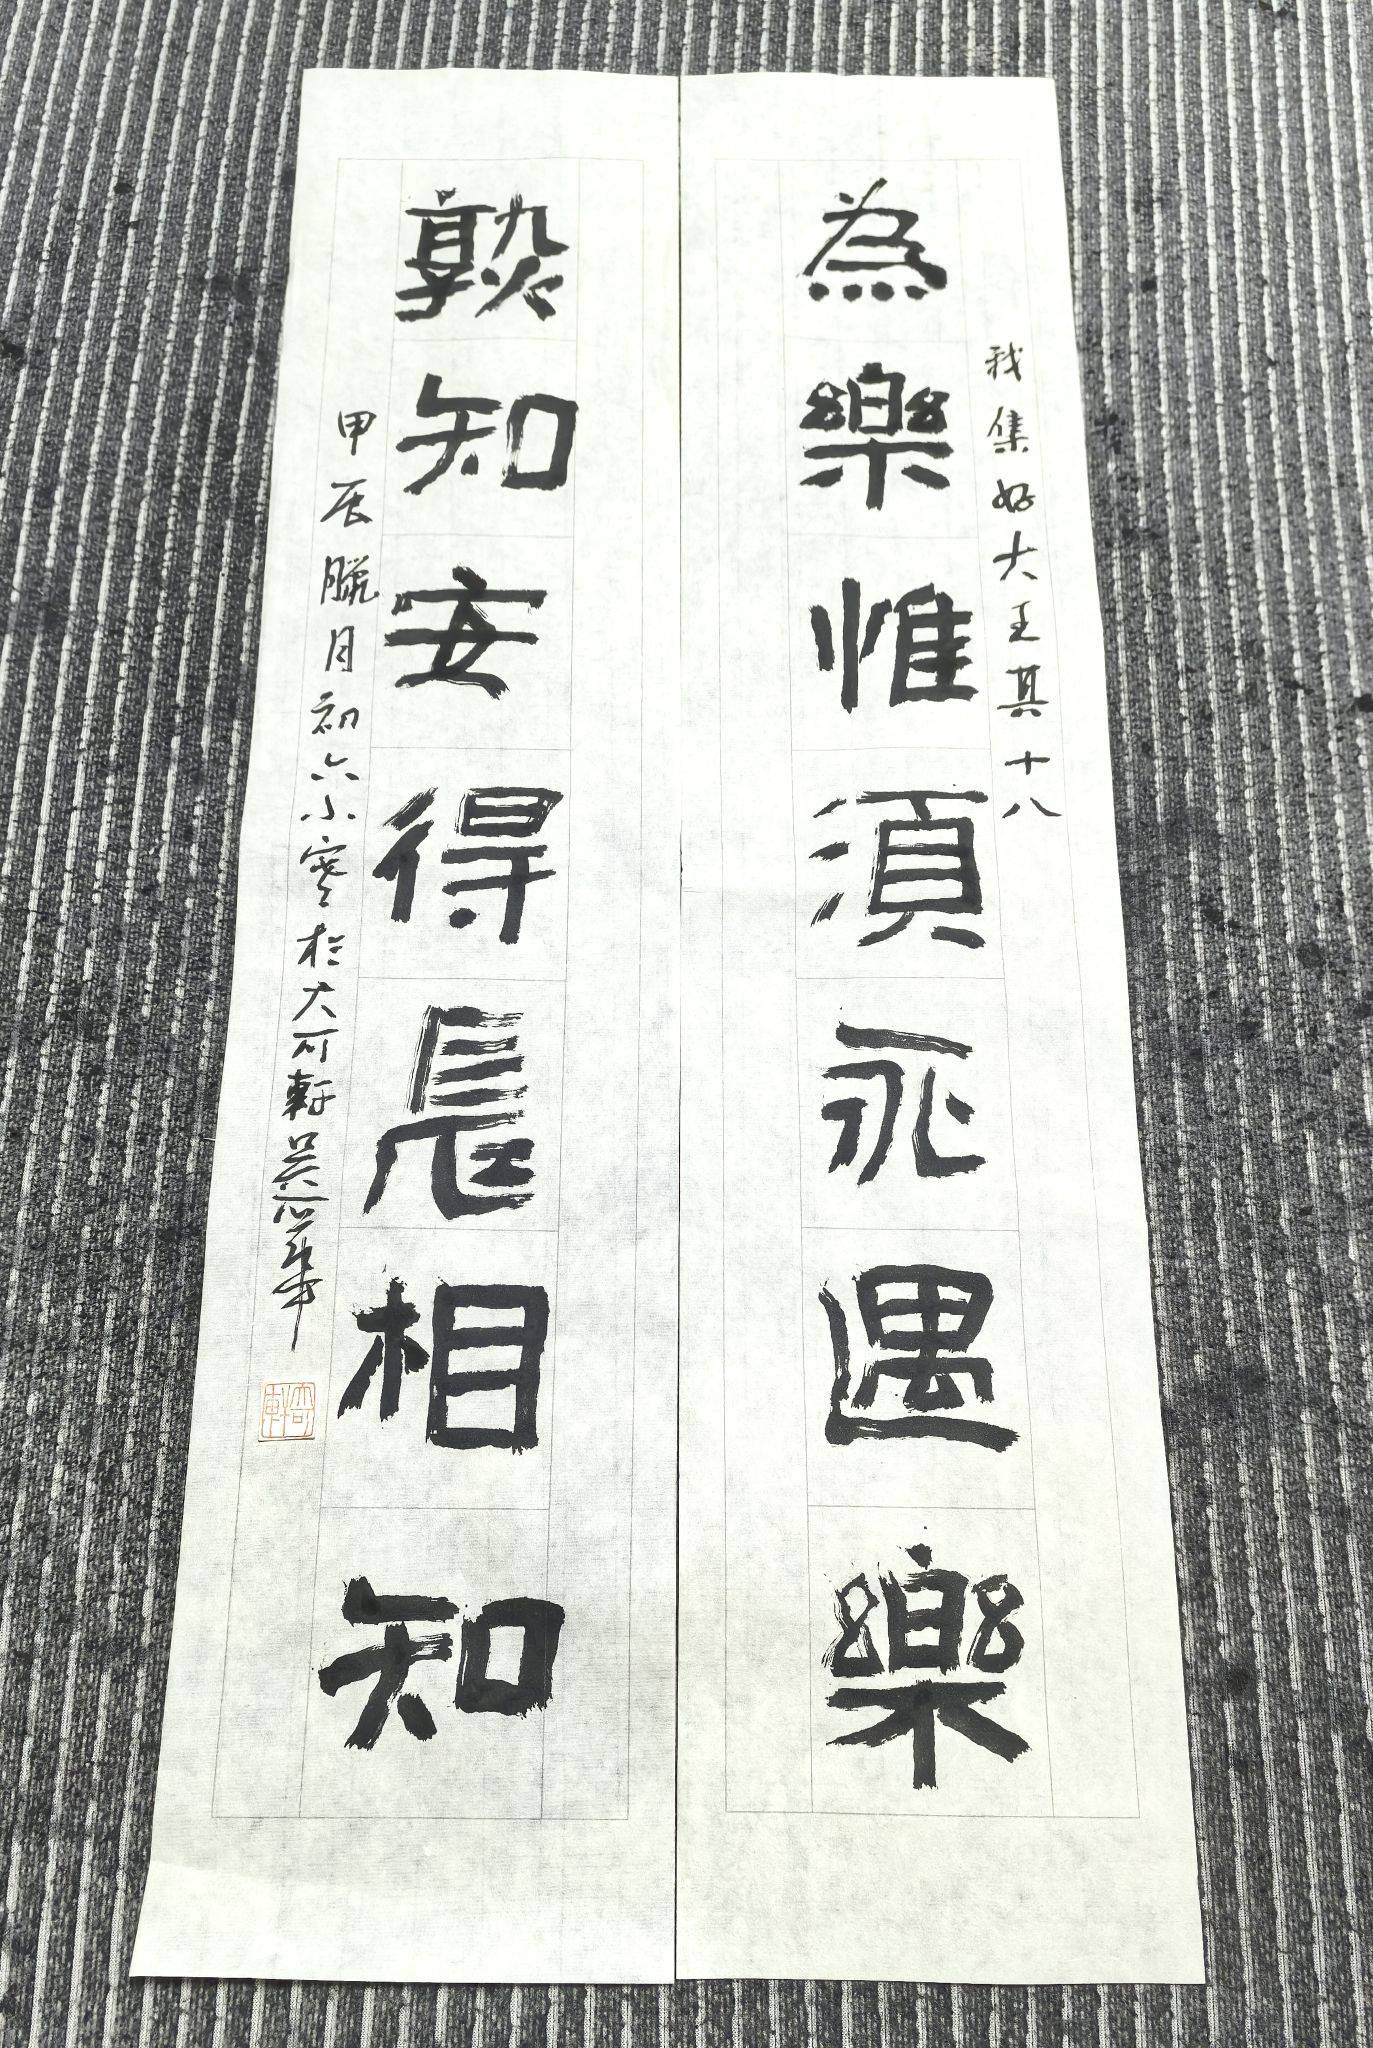 為樂惟須亟遇樂
我集好大王其十八
孰知安得長相知
甲辰臘月初六小寒於大可軒吳慕華